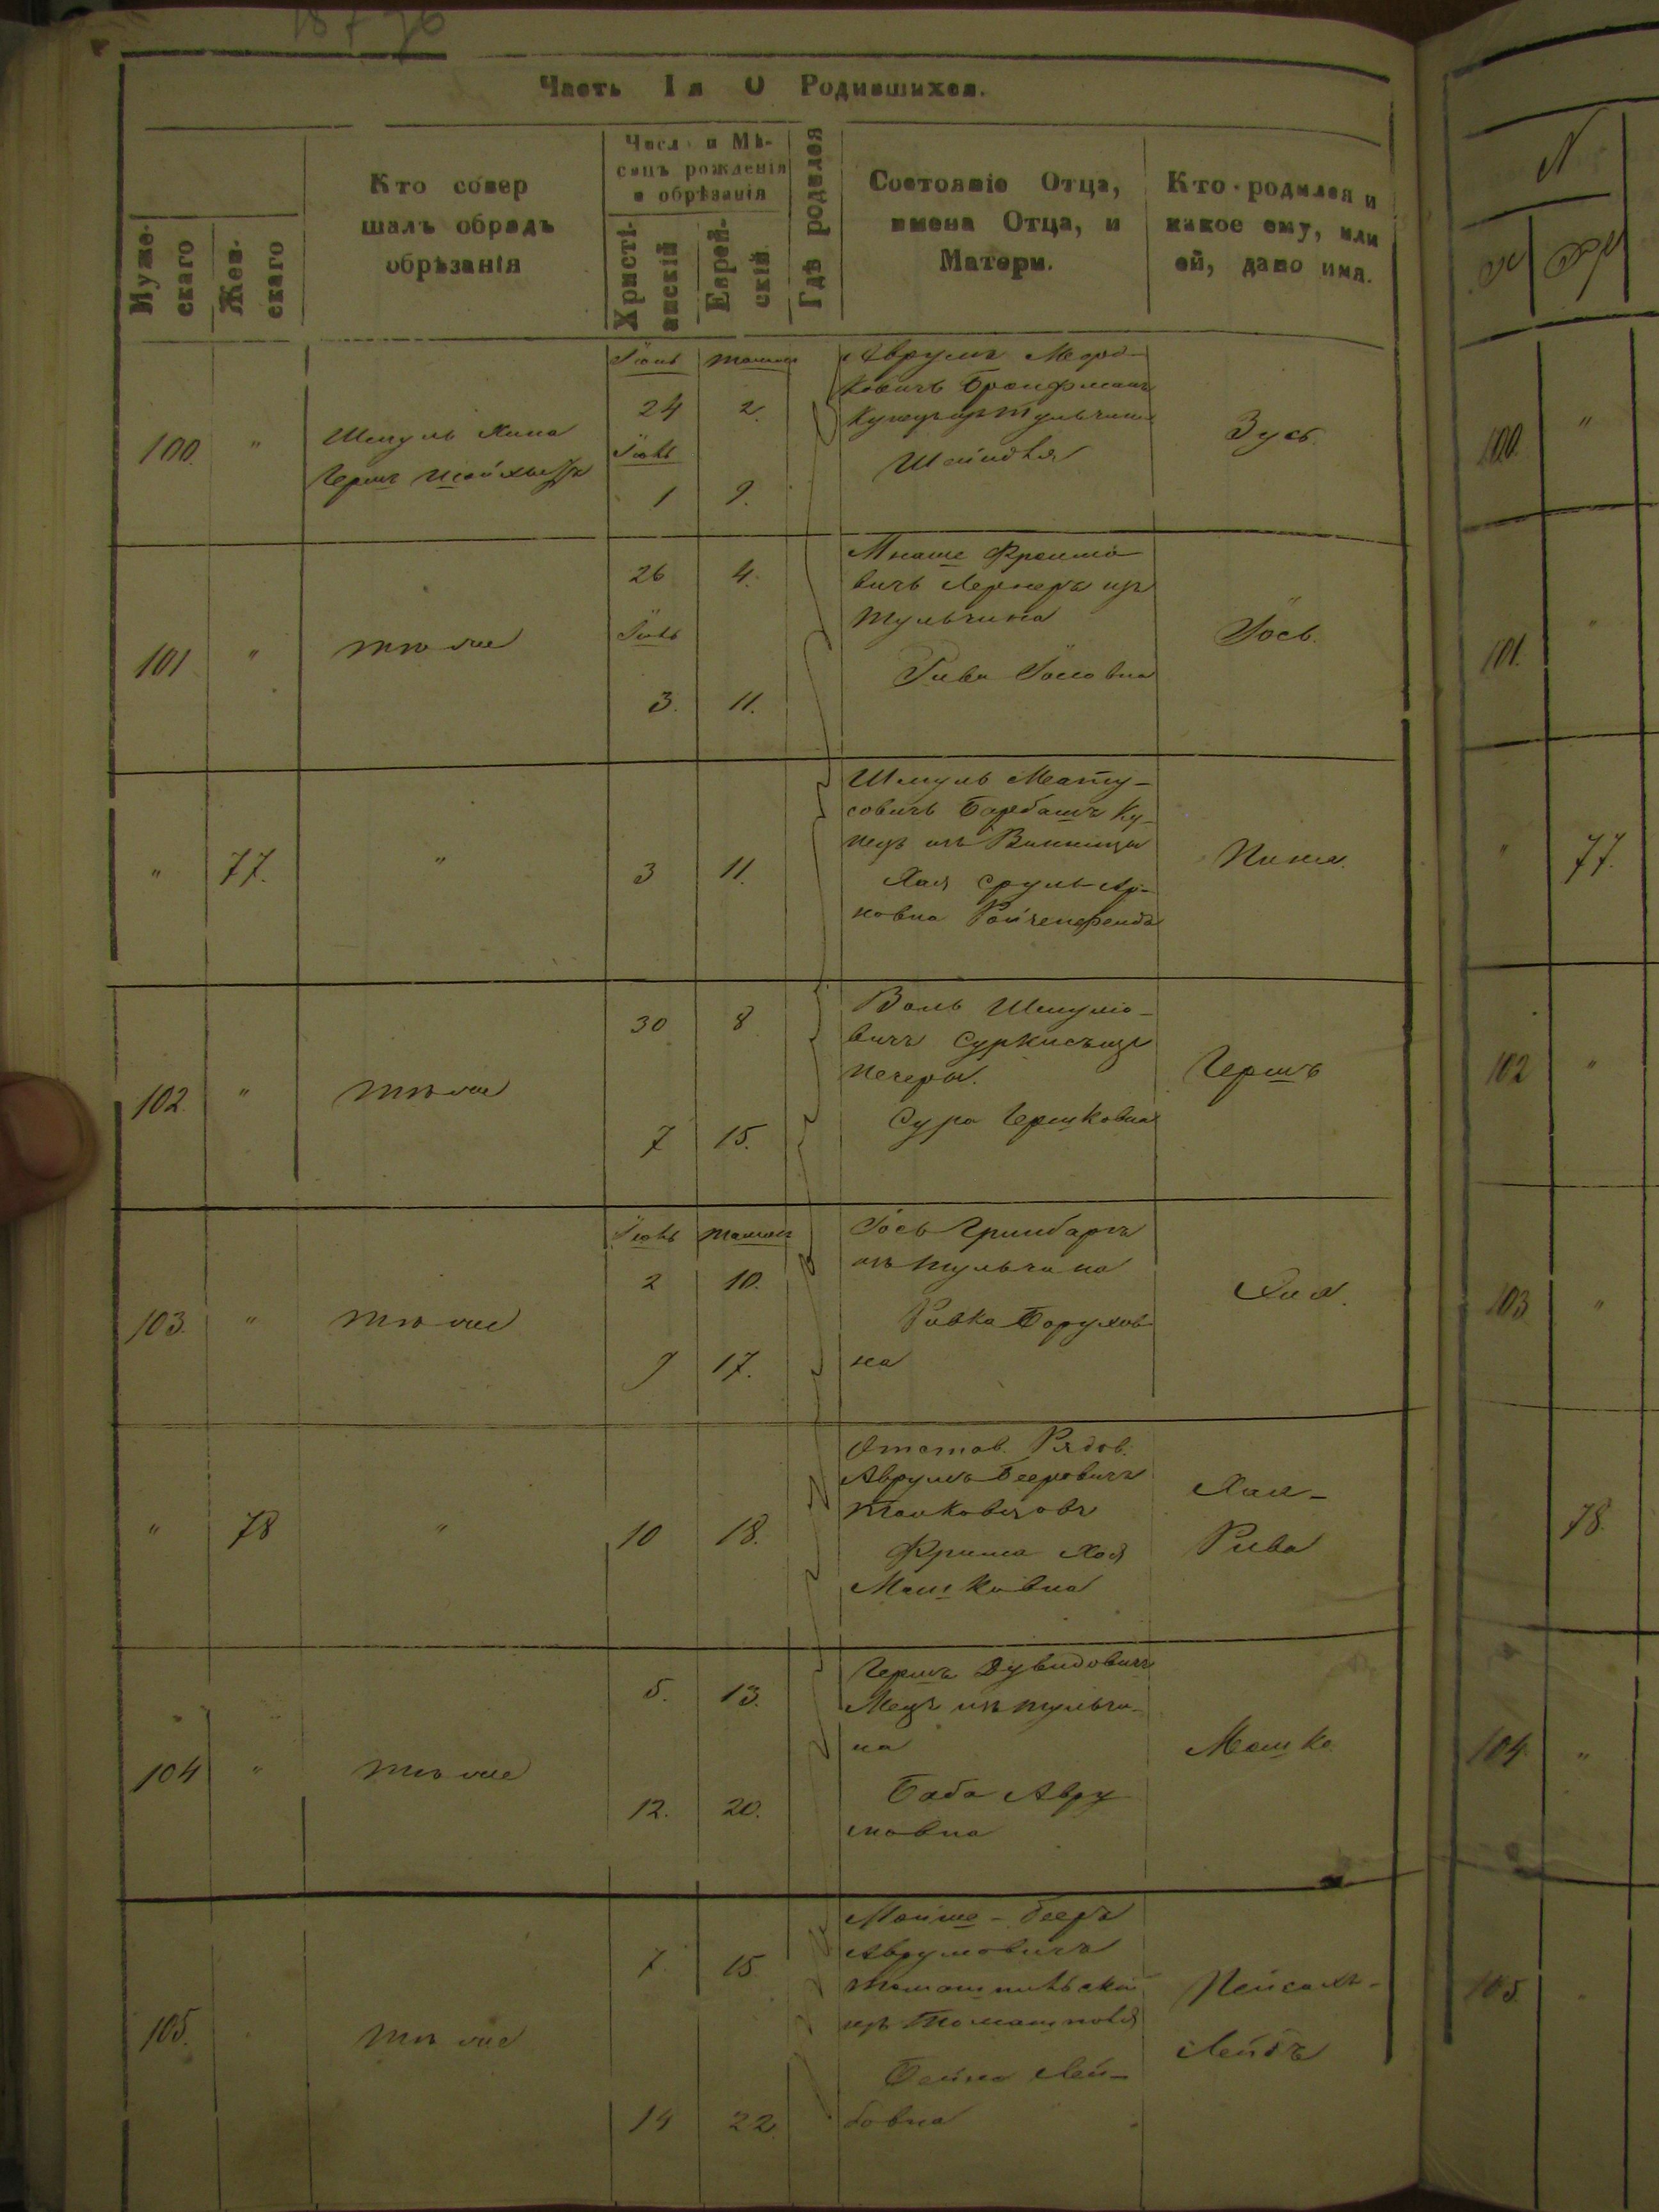 Часть Iя О Родившихся.
Мужескаго
Женскаго
Кто совершалъ обрядъ обрѣзанія
Числ и Мѣсяцъ рожденія и обрѣзанія
Христіанскій
Еврейскій
Гдѣ родился
Состояніе Отца, имена Отца, и Матери.
Кто родился и какое ему, или ей, дано имя.
100.
"
Шмуль
Герш
24
2.
1
9.
Аврумъ Мордковичъ Бронфманъ
купецъ изъ Тульчина
Шейндля
Зусь.
101
"
тѣ же
26
4.
3.
11.
Мнаше Фроимовичъ Лернеръ изъ
Тульчина
Рива Іосіовна
Іось.
"
77.
"
3
11.
Шмуль Матусовичъ Барбашъ Купецъ изъ Винницы
Хая Срулъ-Ароновна
102.
"
тѣ же
30
8
7
15.
Воль Шмуліовичъ Суркисъ изъ
Печеры.
Сура Гершковна
Гершъ
103.
"
тѣ же
2
10.
9
17.
Іось Гринбаргъ
изъ Тульчина
Ривка Боруховна
"
78
"
10
18.
Отстав. Рядов.
Аврумъ Бееровичъ
Фрима Хая
Мошковна
Хая-
Рива
104
"
тѣ же
5.
13.
12.
20.
Гершъ Дувидовичъ
Мецъ изъ Тульчина
Баба Аврумовна
Мошко
105.
тѣ же
7.
15
14
22.
Мойше-Бееръ
Аврумовичъ
Томашпольскій
изъ Томашполя
Бейла Лейбовна
Пейсахъ-
Лейбъ
N
100.
"
101.
"
"
77.
102
"
103
"
78.
104.
"
105.